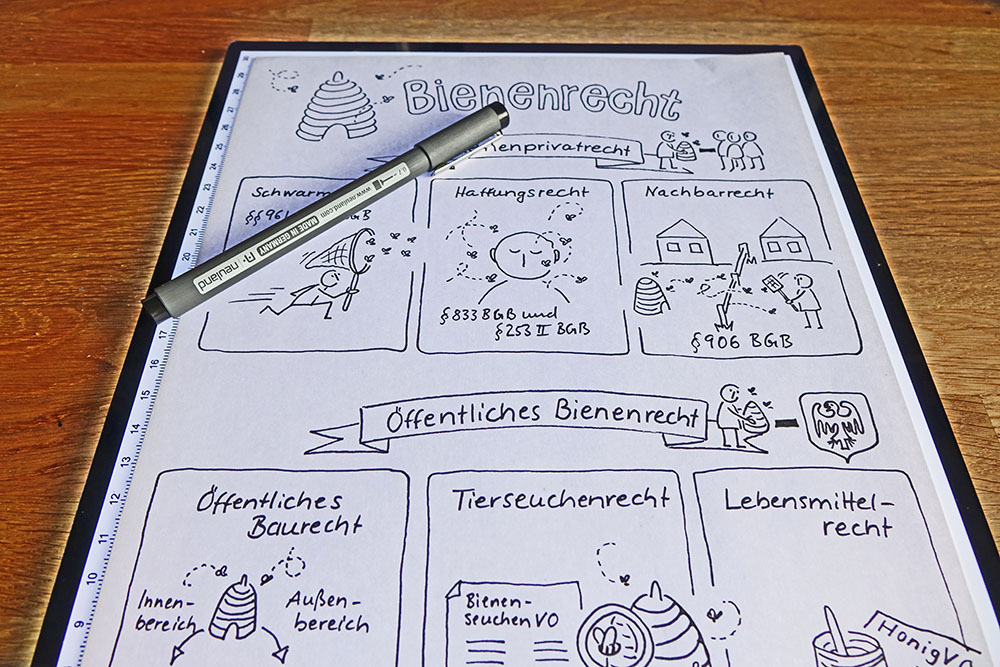 Bienenrecht
enprivatrecht
Schwarm
§§ 961 BGB
Haftungsrecht
§ 833 BGB und
§ 253 II BGB
Nachbarrecht
§ 906 BGB
0.7
www.neuland.com
MADE IN GERMANY
neuland
Öffentliches Bienenrecht
Öffentliches
Baurecht
Innen-
bereich
Außen-
bereich
Tierseuchenrecht
Bienen-
seuchen VO
Lebensmittel-
recht
Honig V
30
29
28
27
26
25
24
23
22
21
20
17
16
15
14
13
12
11
10
9